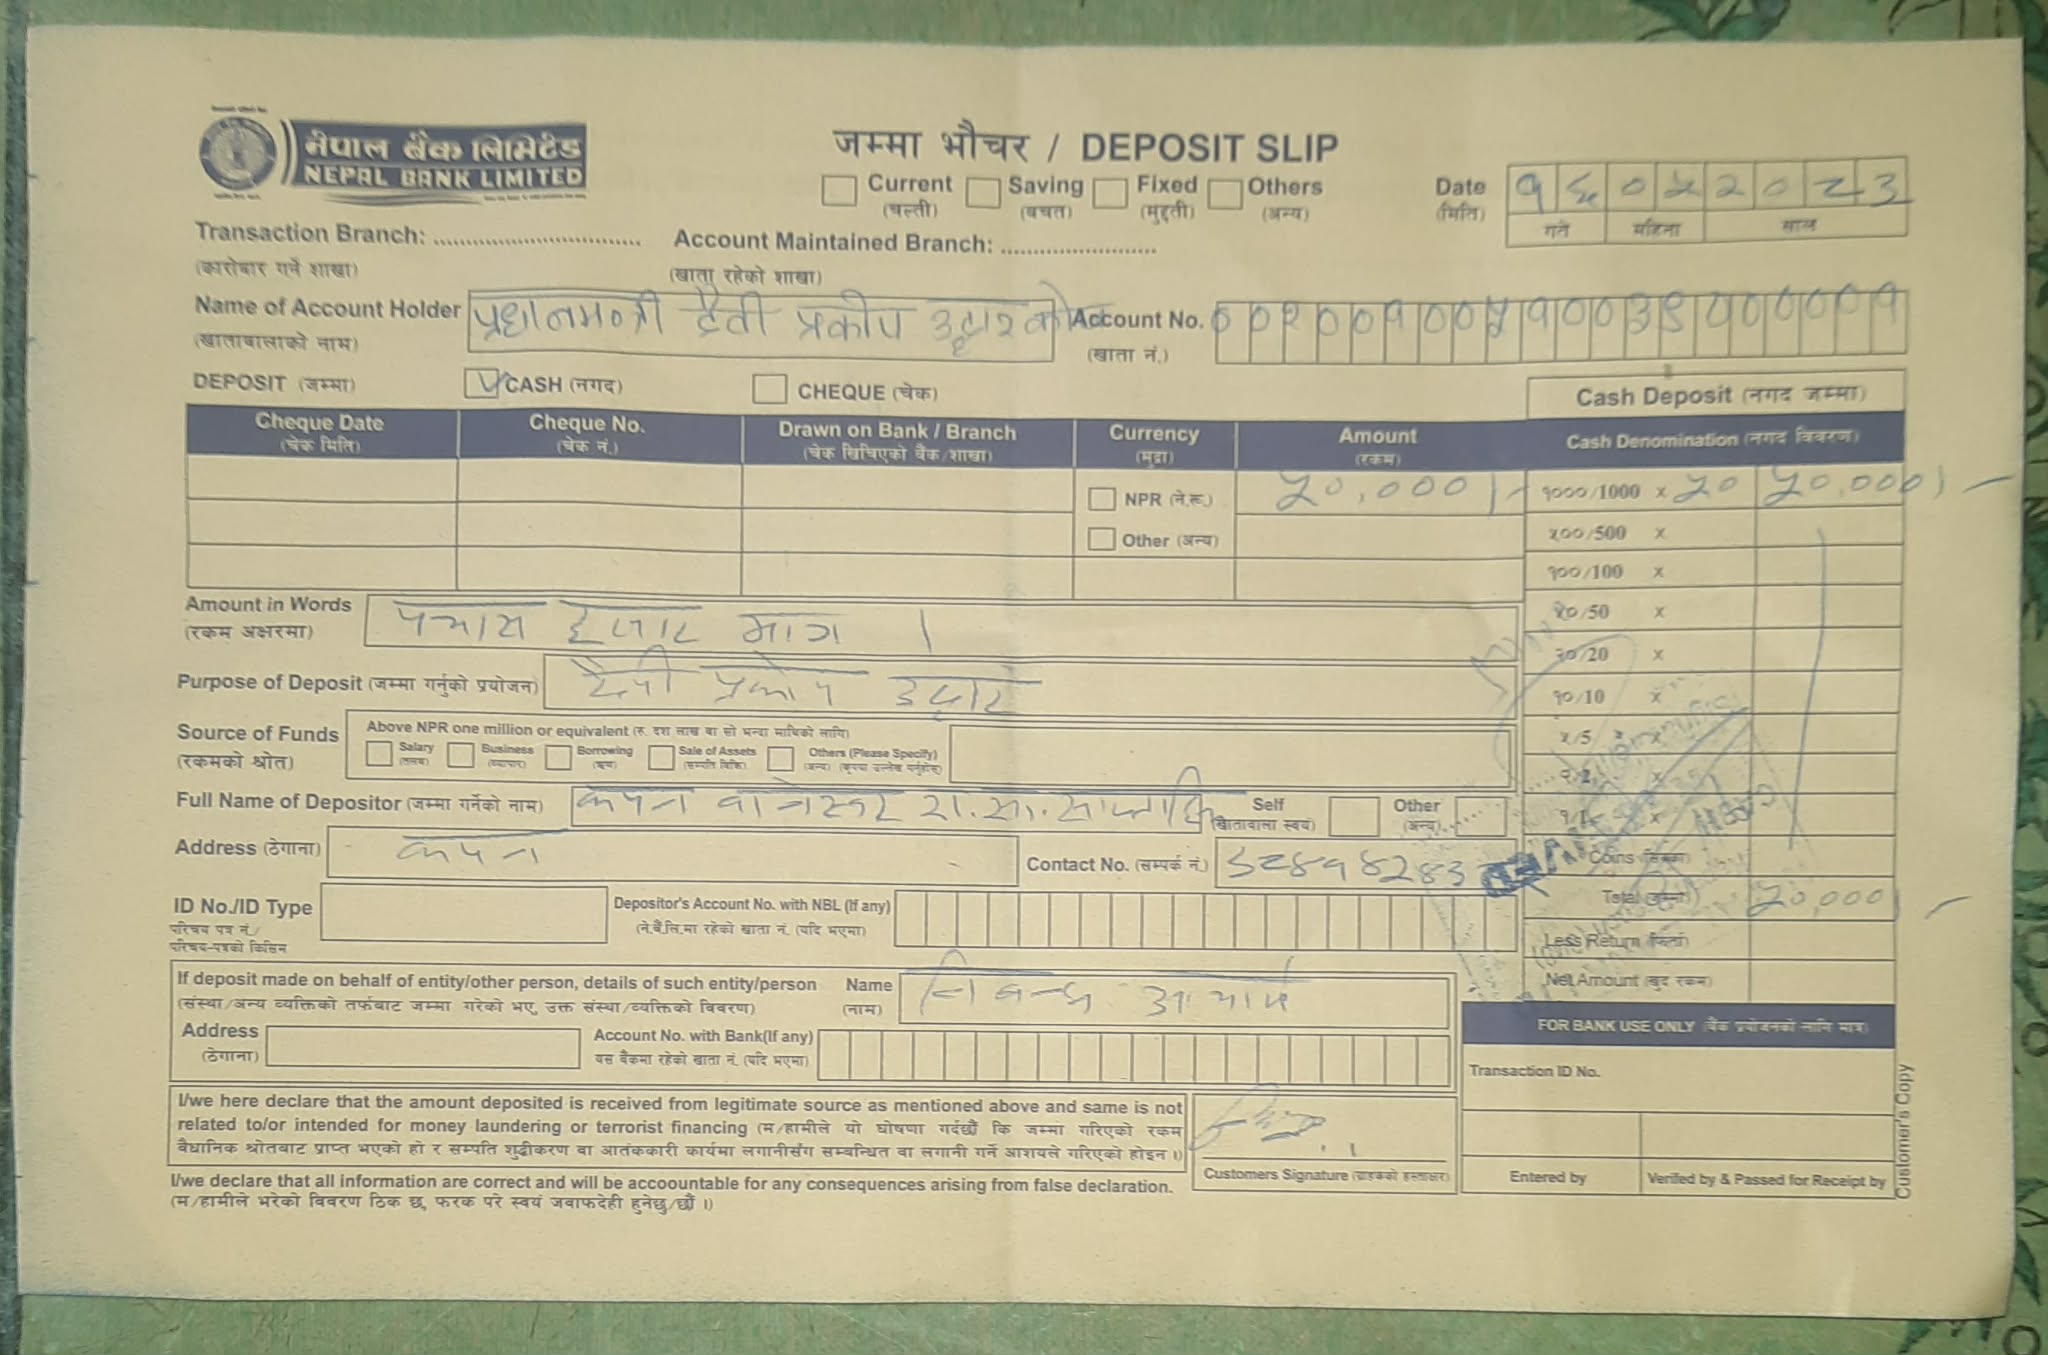 नेपाल बैंक लिमिटेड
NEPAL BANK LIMITED
जम्मा भौचर / DEPOSIT SLIP
Current Saving Fixed Others
(चल्ती) (बचत) (मुद्दती) (अन्य)
Date
(मिति)
गते महिना साल
Transaction Branch: ................................ Account Maintained Branch: ........................
(कारोबार गर्ने शाखा) (खाता रहेको शाखा)
Name of Account Holder प्रधानमन्त्री दैवी प्रकोप उद्धार कोष Account No.
(खातावालाको नाम) (खाता नं.)
DEPOSIT (जम्मा) CASH (नगद) CHEQUE (चेक) Cash Deposit (नगद जम्मा)
Cheque Date Cheque No. Drawn on Bank / Branch Currency Amount Cash Denomination (नगद विवरण)
(चेक मिति) (चेक नं.) (चेक खिचिएको बैंक/शाखा) (मुद्रा) (रकम)
NPR (ने.रू.) ५०,०००।- १०००/1000 x ५० ५०,०००।-
५००/500 x
Other (अन्य)
१००/100 x
Amount in Words पचास हजार मात्र । ५०/50 x
(रकम अक्षरमा)
२०/20 x
Purpose of Deposit (जम्मा गर्नुको प्रयोजन) दैवी प्रकोप उद्धार १०/10 x
Source of Funds Above NPR one million or equivalent (रु. दश लाख वा सो भन्दा माथिको लागि) ५/5 x
(रकमको श्रोत) Salary Business Borrowing Sale of Assets Others (Please Specify)
(तलब) (व्यापार) (ऋण) (सम्पति बिक्रि) (अन्य) (कृपया उल्लेख गर्नुहोस्)
Full Name of Depositor (जम्मा गर्नेको नाम) कपन Self Other
(खातावाला स्वयं) (अन्य)
Address (ठेगाना) कपन Contact No. (सम्पर्क नं.) Coins (सिक्का)
ID No./ID Type Depositor's Account No. with NBL (If any) Total (जम्मा) ५०,०००।-
परिचय पत्र नं./ (ने.बैं.लि.मा रहेको खाता नं. (यदि भएमा)
परिचय-पत्रको किसिम Less Return (फिर्ता)
If deposit made on behalf of entity/other person, details of such entity/person Name Net Amount (खुद रकम)
(संस्था/अन्य व्यक्तिको तर्फबाट जम्मा गरेको भए, उक्त संस्था/व्यक्तिको विवरण) (नाम)
FOR BANK USE ONLY (बैंक प्रयोजनको लागि मात्र)
Address Account No. with Bank(If any)
(ठेगाना) यस बैंकमा रहेको खाता नं. (यदि भएमा)
Transaction ID No.
I/we here declare that the amount deposited is received from legitimate source as mentioned above and same is not
related to/or intended for money laundering or terrorist financing (म/हामीले यो घोषणा गर्दछौं कि जम्मा गरिएको रकम
वैधानिक श्रोतबाट प्राप्त भएको हो र सम्पति शुद्धीकरण वा आतंककारी कार्यमा लगानीसँग सम्बन्धित वा लगानी गर्ने आशयले गरिएको होइन ।)
Customers Signature (ग्राहकको हस्ताक्षर) Entered by Verifed by & Passed for Receipt by
I/we declare that all information are correct and will be accoountable for any consequences arising from false declaration.
(म/हामीले भरेको विवरण ठिक छ, फरक परे स्वयं जवाफदेही हुनेछु/छौं ।)
Customer's Copy